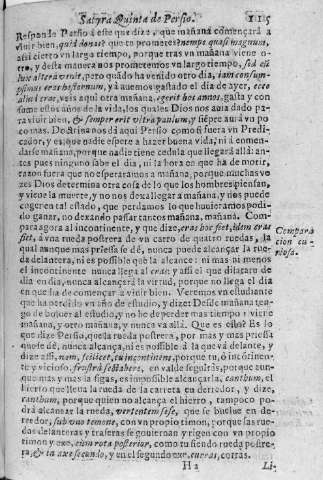 Satyra Quinta de Persio. 115
Responde Persio à este que dize, que mañana començarà a
viuir bien, quid dones? que tu prometes? nempe quasi magnum,
assi cierto vn largo tiempo, porque tras vn mañana viene o-
tro, y desta manera nos prometemos vn largo tiempo, sed cū
lux altera venit, pero quãdo ha venido otro dia, iam consum-
psimus cras hesternum, ya auemos gastado el dia de ayer, ecce
aliud cras, veis aqui otra mañana, egerit hos annos, gasta y con
sume estos años de la vida, los quales Dios nos auia dado pa-
ra viuir bien, & semper erit vltra paulum, y siẽpre aurà vn po
co mas. Doctrina nos dà aqui Persio como si fuera vn Predi-
cador, y es, que nadie espere a hazer buena vida, ni à emendar-
se mañana, porque nadie tiene cedula que llegarà allà: an-
tes pues ninguno sabe el dia, ni la hora en que ha de morir,
razon fuera que no esperaramos a mañana, porque muchas vo
zes Dios determina otra cosa de lo que los hombres piensan,
y viene la muerte, y no nos dexa llegar a mañana, y nos puede
coger en tal estado, que perdamos lo que huuieramos podi-
do ganar, no dexando passar tantos mañana, mañana. Com-
para agora al incontinente, y que dize, cras hoc fiet, idem cras
fiet, à vna rueda postrera de vn carro de quatro ruedas, la
qual aunque mas priessa se dè, nunca puede alcançar la rue-
da delantera, ni es possible que la alcance: ni mas ni menos
el incontinente nunca llega al cras: y assi el que dilatare de
dia en dia, nunca alcançarà la virtud, porque no llega el dia
en que ha de començar a viuir bien. Veremos vn estudiante
que ha perdido vn año de estudio, y dize: Desde mañana ten-
go de boluer al estudio, y no he de perder mas tiempo: viene
mañana, y otro mañana, y nunca va allà. Que es esto? Es lo
que dize Persio, que la rueda postrera, por mas y mas priessa
que le dè, nunca alcança, ni es possible à la que và delante, y
dize assi, nam, scilicet, tu incontinens, porque tu, ò incõtinen-
te y vicioso, frustrà sectabere, en valde seguiràs, porque aun-
que mas y mas la sigas, es impossible alcançarla, canthum, el
hierro que llena la rueda de la carreta en derredor, y dize,
canthum, porque quien no alcança el hierro, tampoco po-
drà alcançar la rueda, vertentem sese, que se buelue en de-
rredor, sub vno temone, con vn propio timon, porque las rue-
das delanteras y traseras se gouiernan y rigen con vn propio
timon y exe, cùm rota posterior, como tu siendo rueda postre-
ra, & in axe secundo, y en el segundo exe, curras, corras.
Compara
cion cu-
riosa.
H 2 Li-